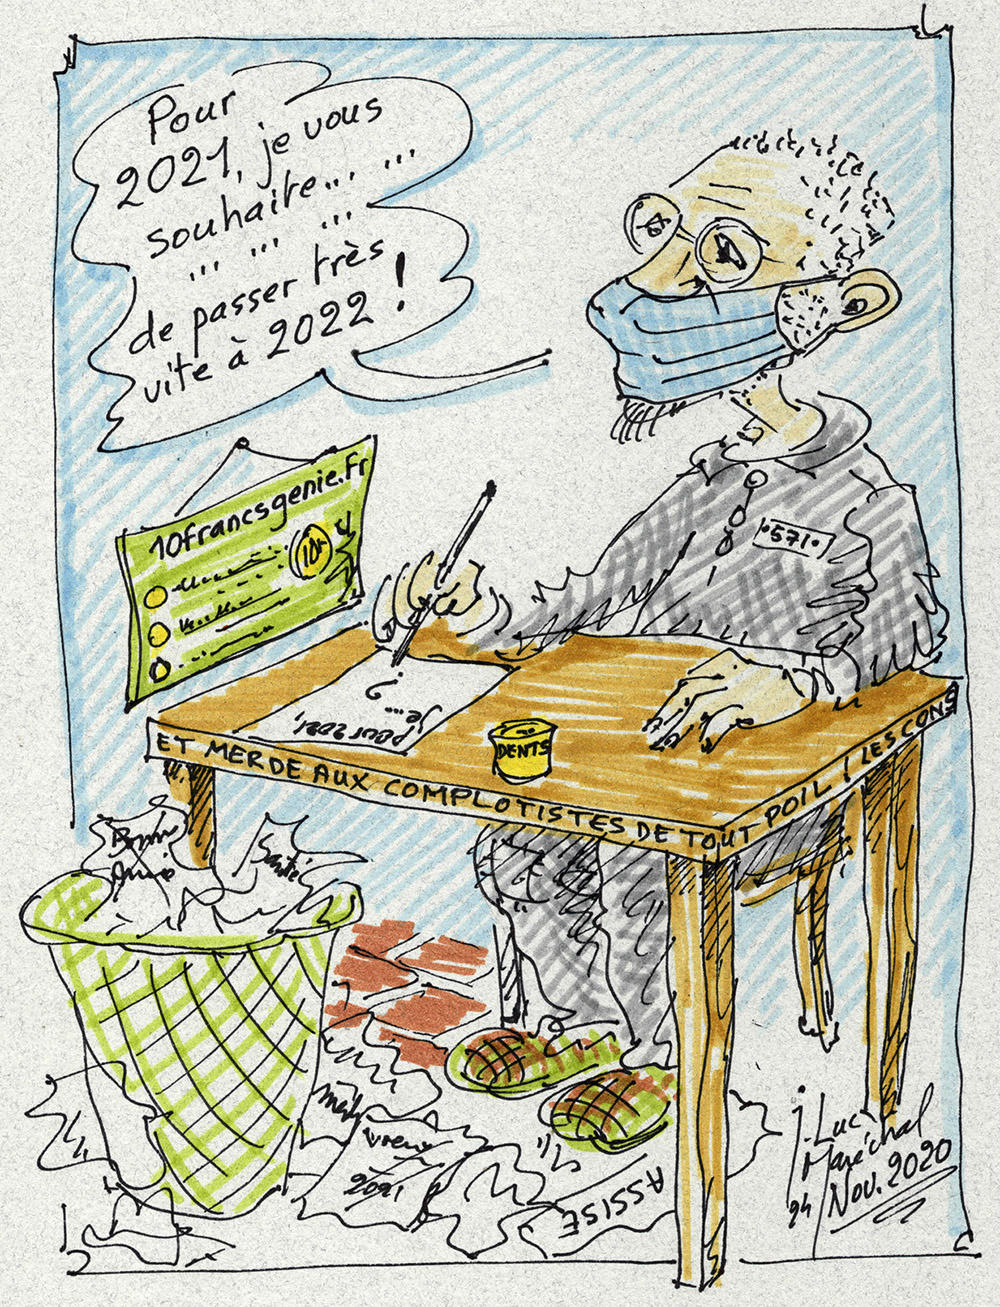 Pour
2021, je vous
souhaite... ...
... ... ...
de passer très
vite à 2022 !
10francsgenie.Fr
10F
.571.
?
je...
pour 2021,
DENTS
ET MERDE AUX COMPLOTISTES DE TOUT POIL ! LES CONS
Bonne
Année
Santé
voeux
2021
ASSISE
J-Luc
Maréchal
24 Nov. 2020